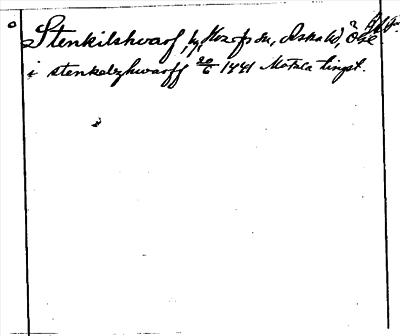 Stenkilshvarf, by, sn, Aska hd, Ög
i stenkelzhwarff 20/6 1441 Motala tingst.